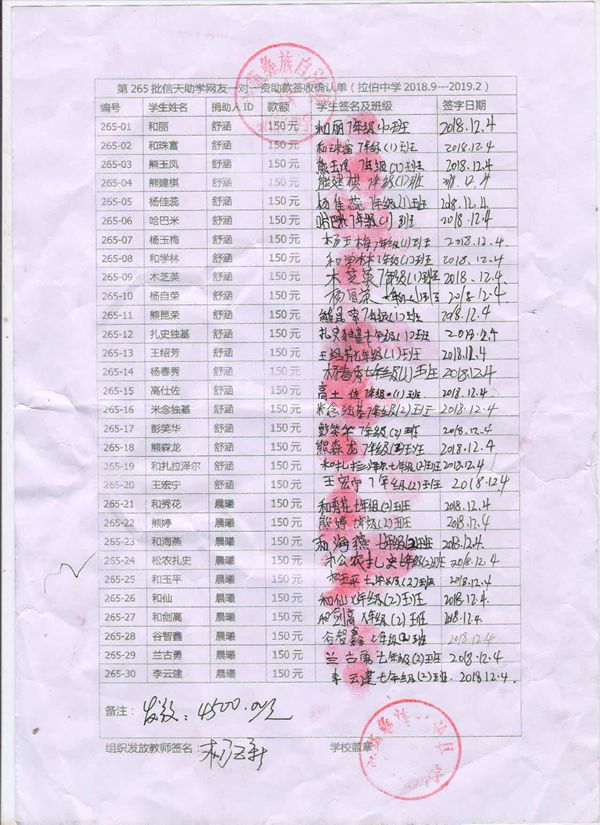 第 265 批信天助学网友一对一资助款签收确认单（拉伯中学 2018.9---2019.2）
编号 学生姓名 捐助人 ID 款额 学生签名及班级 签字日期
265-01 和丽 舒涵 150 元 和丽 7年级(1)班 2018.12.4
265-02 和珠富 舒涵 150 元 和珠富 7年级(1)班 2018.12.4
265-03 熊玉凤 舒涵 150 元 熊玉凤 7年级(1)班 2018.12.4
265-04 熊建棋 舒涵 150 元 熊建棋 7年级(1)班
265-05 杨佳蕊 舒涵 150 元 杨佳蕊 7年级(1)班
265-06 哈巴米 舒涵 150 元 哈巴米 7年级(1)班 2018.12.4
265-07 杨玉梅 舒涵 150 元 杨玉梅 7年级(1)班 2018.12.4.
265-08 和学林 舒涵 150 元 和学林 7年级(1)班 2018.12.4.
265-09 木芝英 舒涵 150 元 木芝英 7年级(1)班 2018.12.4.
265-10 杨自荣 舒涵 150 元 杨自荣 2018.12.4
265-11 熊昆荣 舒涵 150 元 熊昆荣 7年级(1)班 2018.12.4
265-12 扎史独基 舒涵 150 元 扎史独基 七年级(1)班 2018.12.4
265-13 王绍芳 舒涵 150 元 王绍芳 七年级(1)班
265-14 杨春秀 舒涵 150 元 杨春秀 七年级(1)班 2018.12.4
265-15 高仕佐 舒涵 150 元 2018.12.4.
265-16 米念独基 舒涵 150 元 米念独基 7年级(2)班 2018.12.4
265-17 彭笑华 舒涵 150 元 彭笑华 7年级(2)班 2018.12.4
265-18 熊森龙 舒涵 150 元 熊森龙 7年级 2018.12.4
265-19 和扎拉泽尔 舒涵 150 元 和扎拉泽尔 七年级(2)班 2018.12.4
265-20 王宏宁 舒涵 150 元 王宏宁 7年级(2)班 2018.12.4
265-21 和秀花 晨曦 150 元 和秀花 七年级(2)班 2018.12.4
265-22 熊婷 晨曦 150 元 熊婷 七年级(2)班 2018.12.4
265-23 和海燕 晨曦 150 元 和海燕 七年级(2)班 2018.12.4.
265-24 松农扎史 晨曦 150 元 松农扎史 七年级(2)班 2018.12.4
265-25 和玉平 晨曦 150 元 和玉平 七年级(2)班 2018.12.4
265-26 和仙 晨曦 150 元 和仙 七年级(2)班 2018.12.4
265-27 和剑高 晨曦 150 元 和剑高 七年级(2)班 2018.12.4
265-28 谷智鑫 晨曦 150 元 谷智鑫 七年级(2)班 2018.12.4
265-29 兰古勇 晨曦 150 元 兰古勇 七年级(2)班 2018.12.4.
265-30 李云建 晨曦 150 元 李云建 七年级(2)班. 2018.12.4.
备注： 发放: 4500.00元
组织发放教师签名： 学校盖章